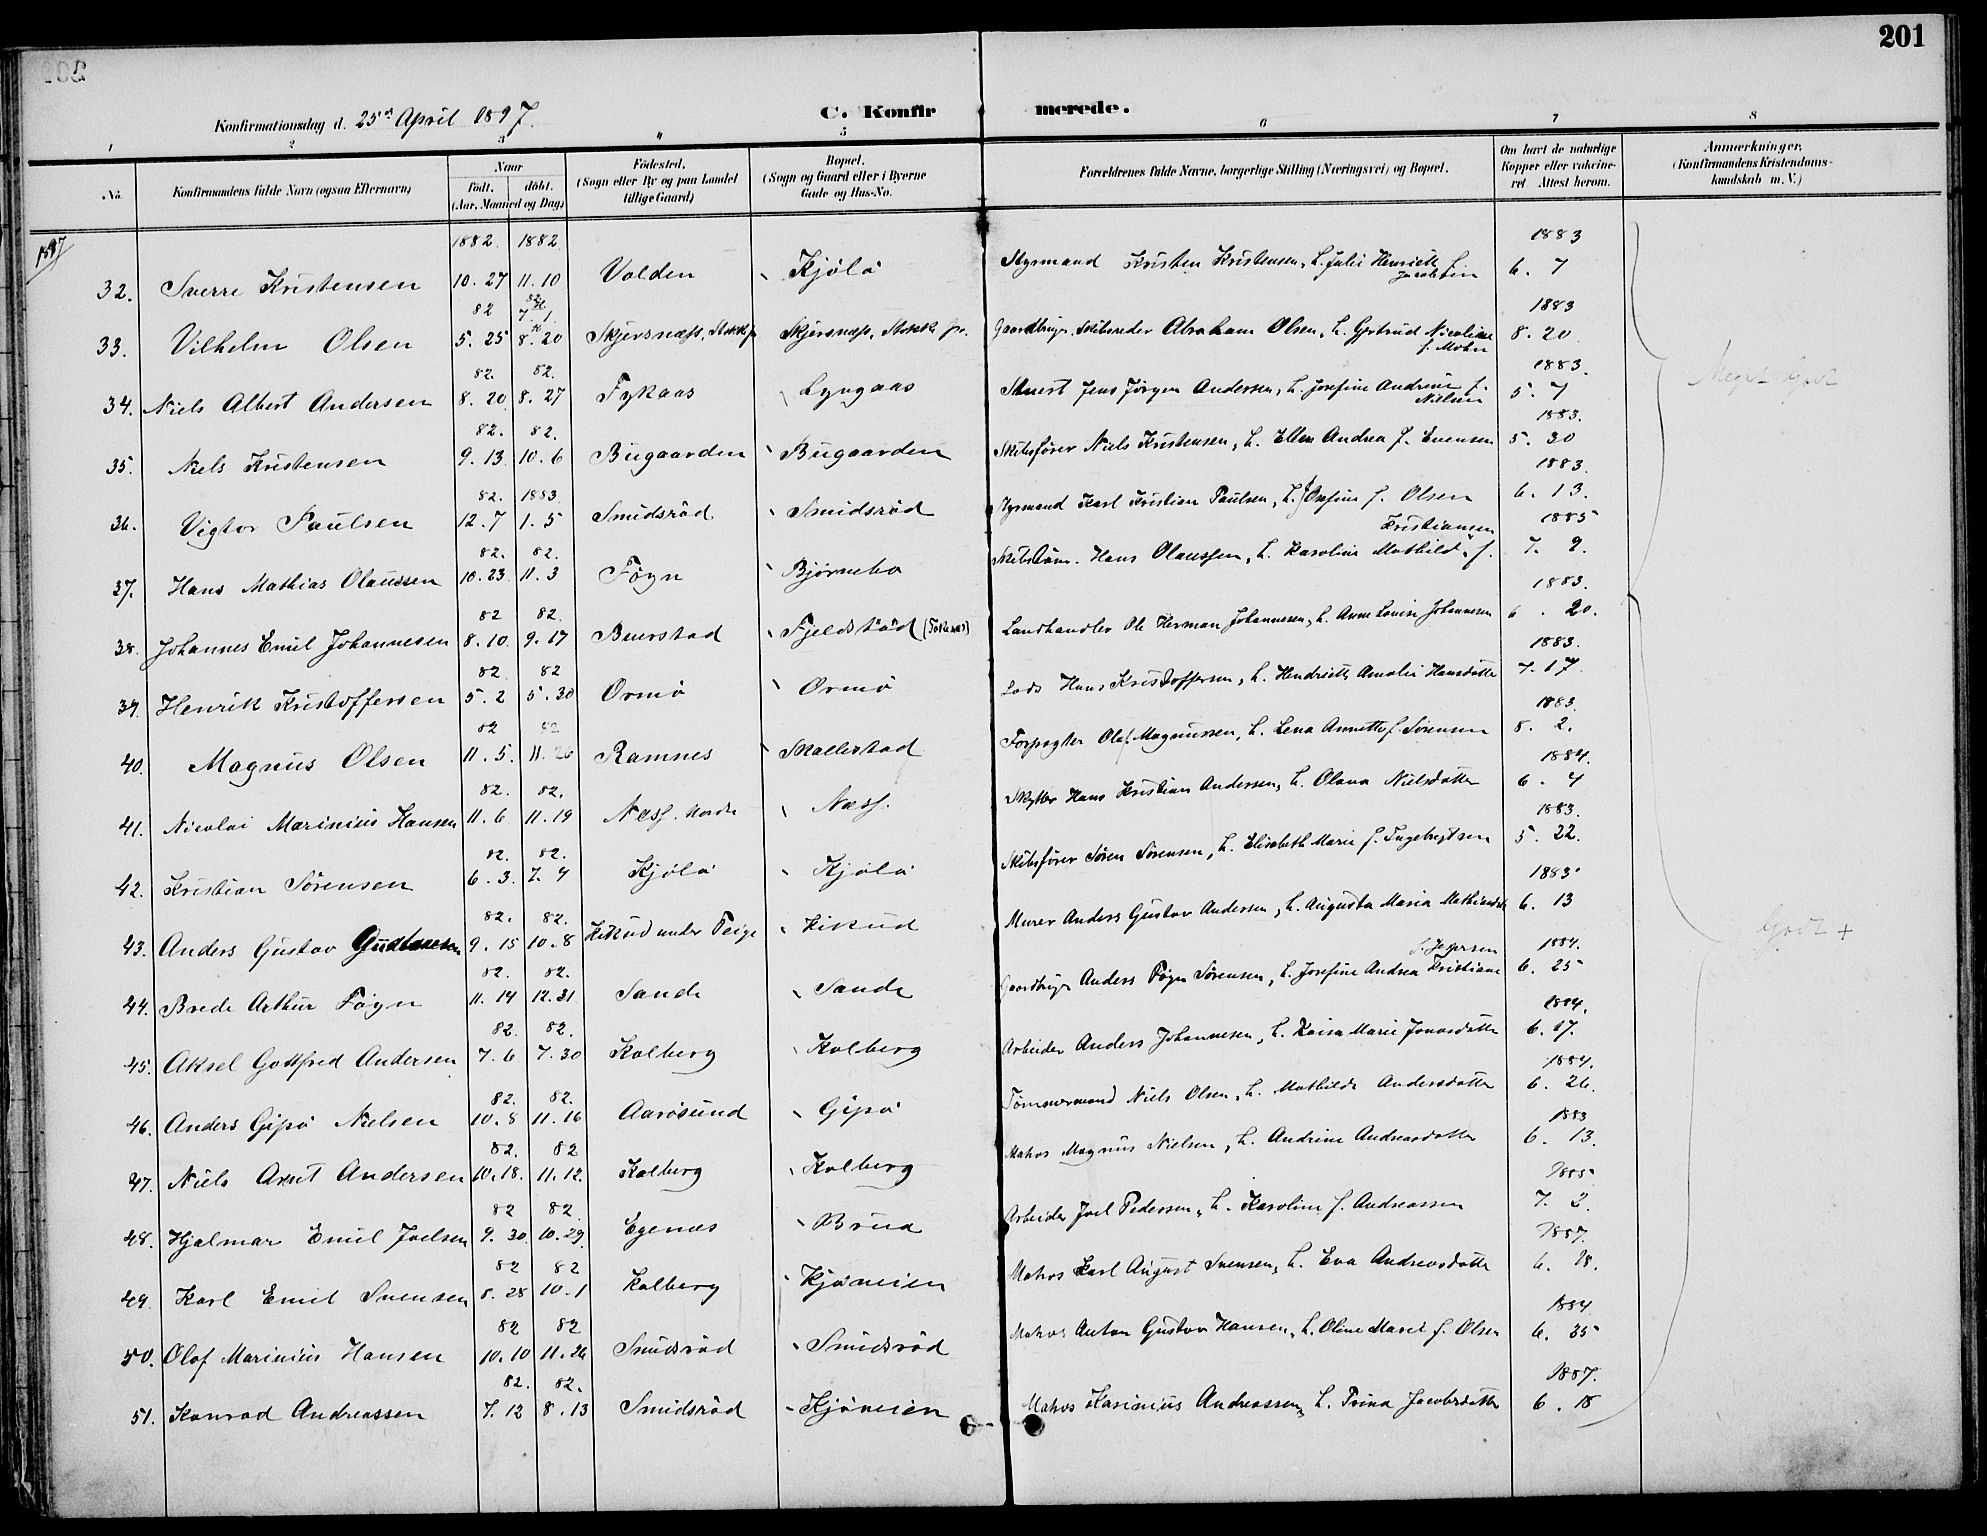 201
Konfirmationsdag d. 25de April 1897.
C. Konfirmerede.
1 2 3 4 5 6 7 8
No. Konfirmandens fulde Navn (ogsaa Efternavn) Naar født. døbt. (Aar, Maaned og Dag) Fødested. (Sogn eller By og paa Landet tillige Gaard) Bopæl. (Sogn og Gaard eller i Byerne Gade og Hus-No. Forældrenes fulde Navne, borgerlige Stilling (Næringsvei) og Bopæl. Om havt de naturlige Kopper eller vakcineret Attest herom. Anmærkninger. (Konfirmandens Kristendomskundskab m. V.)
1897
1882. 1882. 1883
32. Sverre Kristensen 10.27 11.10 Volden Kjølø Styrmand Kristen Kristensen, h. Julie Henriette f. Jacobsen 6. 7
82 1883
33. Vilhelm Olsen 5.25 8.20 Skjersnæss, Stokke Skjersnæss, Stokke pr. Gaardbruger, Skibsreder Abraham Olsen, h. Gjertrud Nicoline f. Mohn 8.20
82. 82. 1883.
34. Niels Albert Andersen 8.20 8.27 Fykaas Lyngaas Stuert Jens Jørgen Andersen, h. Josefine Andrine f. Nielsen 5. 7
Meget Godt
82. 82. 1883.
35. Niels Kristensen 9.13. 10.6 Bugaarden Bugaarden Skibsfører Niels Kristensen, h. Ellen Andrea f. Evensen 5. 30
82. 1883. 1883.
36. Vigtor Paulsen 12.7 1.5 Smidsrød Smidsrød Styrmand Karl Kristian Paulsen, h. Josefine f. Olsen 6.13.
82. 82. 1885
37. Hans Mathias Olaussen 10.23. 11.3 Føyn Bjørnebo Skibstøm. Hans Olaussen, h. Karoline Mathilde f. Kristiansen 7. 9.
82 82. 1883.
38. Johannes Emil Johannesen 8.10. 9.17 Buerstad Fjeldstad Landhandler Ole Herman Johannesen, h. Anne Louise Johannesen 6. 20.
82. 82 1883.
39. Henrik Kristoffersen 5.2 5.30 Ormø Ormø Lods Hans Kristoffersen, h. Hendriette Amalie Hansdatter 7.17
82 82 1883.
40. Magnus Olsen 11.5. 11.26 Ramnes Skallestad Forpagter Olaf Magnussen, h. Lena Annette f. Sørensen 8. 2.
82. 82. 1884.
41. Nicolai Marinius Hansen 11.6 11.19 Næss. Nordre Næss. Skytter Hans Kristian Andersen, h. Olava Nielsdatter 6. 4
82. 82. 1883.
42. Kristian Sørensen 6.3. 7.4 Kjølø Kjølø Skibsfører Søren Sørensen, h. Elisabeth Marie f. Ingebrigtsen 5. 22.
82. 82. 1883.
43. Anders Gustav 9.15 10.8 Hikud under Teige Hikud Murer Anders Gustav Andersen, h. Augusta Maria Mathiasdtr 6. 13
Godt +
82. 82. 1884.
44. Brede Arthur Føyn 11.14 12.31 Sande Sande Gaardbruger Anders Føyn Sørensen, h. Josefine Andrea Kristiane f. Jespersen 6. 25
82. 82. 1884.
45. Aksel Gottfred Andersen 7.6 7.30 Kolberg Kolberg Arbeider Anders Johannesen, h. Kaisa Marie Jonasdatter 6.17.
82. 82. 1884.
46. Anders Gipø Nielsen 10.8 11.16 Aarøsund Gipø Tømmermand Niels Olsen, h. Mathilde Andersdatter 6. 26.
82. 82 1883
47. Niels Arnt Andersen 10.18. 11.12. Kolberg Kolberg Matros Magnus Nielsen, h. Andrine Andreasdatter 6. 13.
82 82. 1885
48. Hjalmar Emil Joelsen 9.30. 10.29. Egenæs Brua Arbeider Joel Pedersen, h. Karoline f. Andreassen 7. 2.
82 82 1887.
49. Karl Emil Svensen 8.28 10.1 Kolberg Kjøneien Matros Karl August Svensen, h. Eva Andreasdatter 6. 18.
82 82 1884
50. Olaf Marinius Hansen 10.10 11.26 Smidsrød Smidsrød Matros Anton Gustav Hansen, h. Oline Marie f. Olsen 6. 25
82. 82. 1887.
51. Konrad Andreassen 7.12 8.13 Smidsrød Kjøneien Matros Karinius Andreassen, h. Trina Jacobsdatter 6. 18